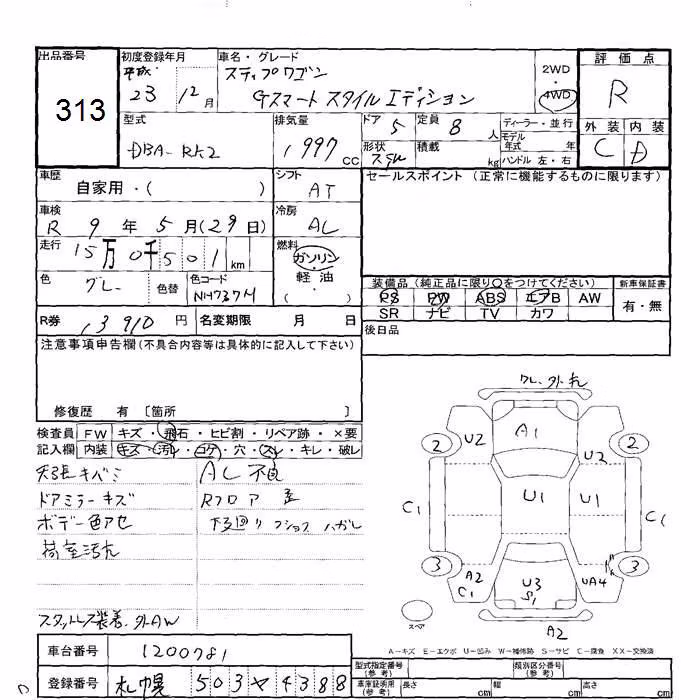 出品番号
313
初度登録年月
平成
23 12月
車名・グレード
ステップワゴン
Gスマート スタイル エディション
2WD
・
4WD
評価点
R
外装 内装
C D
型式
DBA-RK2
排気量
1997cc
ドア
5
定員
8人
形状
積載
kg
ディーラー・並行
モデル年式 年
ハンドル 左・右
車歴
自家用・( )
シフト
AT
車検
R 9年 5月(29日)
冷房
AL
走行
15万0千501km
燃料
ガソリン
・
軽油
( ・ )
色
グレー
色替
色コード
NH737M
R券 13910円
名変期限 月 日
セールスポイント(正常に機能するものに限ります)
装備品(純正品に限り○をつけてください)
新車保証書
PS PW ABS エアB AW
SR ナビ TV カワ
有・無
後日品
注意事項申告欄(不具合内容等は具体的に記入して下さい)
修復歴 有 〔箇所 〕
検査員 FW キズ・飛石・ヒビ割・リペア跡・×要
記入欄 内装 キズ・汚れ・コゲ・穴・スレ・キレ・破レ
天張キバミ
AL不良
ドアミラーキズ
Rフロア 歪
ボデー色アセ
下廻り ブッシュ ハガレ
荷室汚れ
スタットレス装着、外AW
クレ、外れ
A1
U2 U2
2 2
C1 U1 U1 C1
3 3
A2 C1
U3 S1
UA4
スペア
A2
A-キズ E-エクボ U-凹み W-補修跡 S-サビ C-腐食 XX-交換済
車台番号
1200781
登録番号
札幌 503 マ 4388
型式指定番号(参考)
類別区分番号(参考)
車庫証明用(参考)
長さ cm
幅 cm
高さ cm